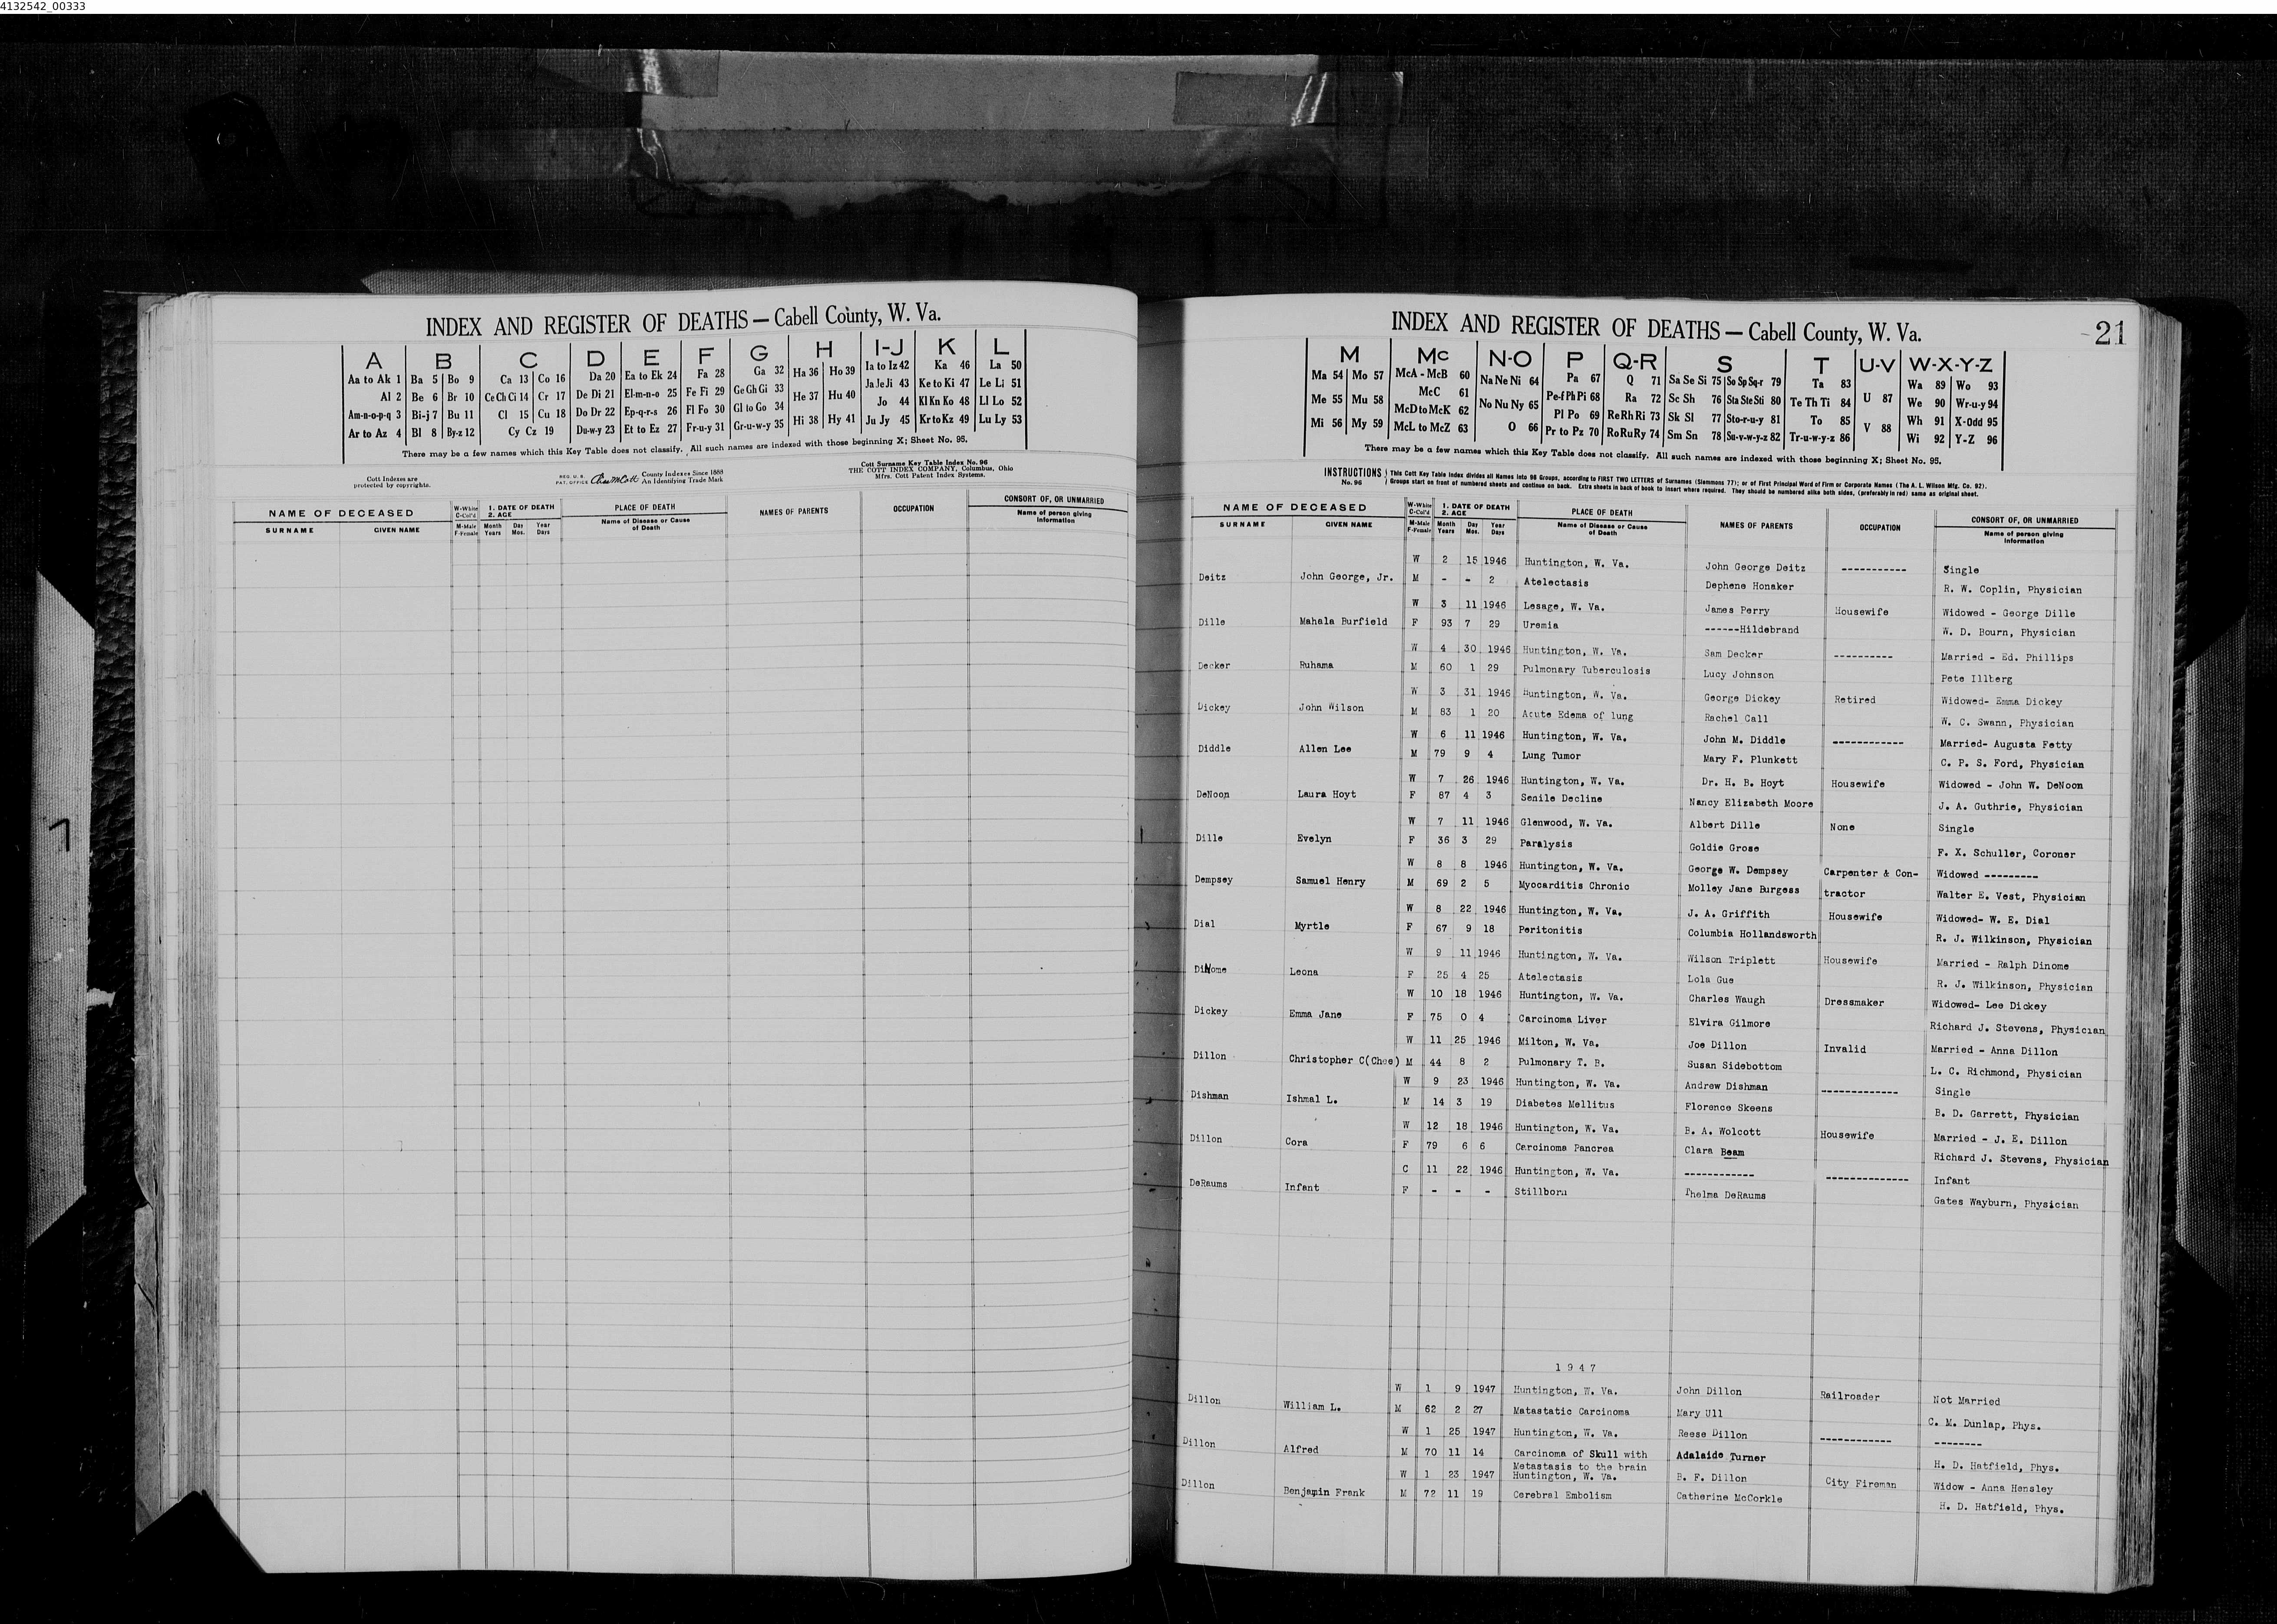 4132542_00333
INDEX AND REGISTER OF DEATHS — Cabell County, W. Va.
A B C D E F G H I-J K L
Aa to Ak 1 Ba 5 Bo 9 Ca 13 Co 16 Da 20 Ea to Ek 24 Fa 28 Ga 32 Ha 36 Ho 39 Ia to Iz 42 Ka 46 La 50
Al 2 Be 6 Br 10 Ce Ch Ci 14 Cr 17 De Di 21 El-m-n-o 25 Fe Fi 29 Ge Gh Gi 33 He 37 Hu 40 Ja Je Ji 43 Ke to Ki 47 Le Li 51
Am-n-o-p-q 3 Bi-j 7 Bu 11 Cl 15 Cu 18 Do Dr 22 Ep-q-r-s 26 Fl Fo 30 Gl to Go 34 Hi 38 Hy 41 Jo 44 Kl Kn Ko 48 Ll Lo 52
Ar to Az 4 Bl 8 By-z 12 Cy Cz 19 Du-w-y 23 Et to Ez 27 Fr-u-y 31 Gr-u-w-y 35 Ju Jy 45 Kr to Kz 49 Lu Ly 53
There may be a few names which this Key Table does not classify. All such names are indexed with those beginning X; Sheet No. 95.
Cott Indexes are protected by copyrights.
REG. U. S. PAT. OFFICE
County Indexes Since 1888
An Identifying Trade Mark
Cott Surname Key Table Index No. 96
THE COTT INDEX COMPANY, Columbus, Ohio
Mfrs. Cott Patent Index Systems.
NAME OF DECEASED W-White C-Col'd 1. DATE OF DEATH 2. AGE PLACE OF DEATH NAMES OF PARENTS OCCUPATION CONSORT OF, OR UNMARRIED
SURNAME GIVEN NAME M-Male F-Female Month Years Day Mos. Year Days Name of Disease or Cause of Death Name of person giving information
INDEX AND REGISTER OF DEATHS — Cabell County, W. Va. 21
M Mc N-O P Q-R S T U-V W-X-Y-Z
Ma 54 Mo 57 McA - McB 60 Na Ne Ni 64 Pa 67 Q 71 Sa Se Si 75 So Sp Sq-r 79 Ta 83 U 87 Wa 89 Wo 93
Me 55 Mu 58 McC 61 No Nu Ny 65 Pe-f Ph Pi 68 Ra 72 Sc Sh 76 Sta Ste Sti 80 Te Th Ti 84 V 88 We 90 Wr-u-y 94
Mi 56 My 59 McD to McK 62 O 66 Pl Po 69 Re Rh Ri 73 Sk Sl 77 Sto-r-u-y 81 To 85 Wh 91 X-Odd 95
McL to McZ 63 Pr to Pz 70 Ro Ru Ry 74 Sm Sn 78 Su-v-w-y-z 82 Tr-u-w-y-z 86 Wi 92 Y-Z 96
There may be a few names which this Key Table does not classify. All such names are indexed with those beginning X; Sheet No. 95.
INSTRUCTIONS No. 96 This Cott Key Table Index divides all Names into 96 Groups, according to FIRST TWO LETTERS of Surnames (Slemmons 77); or of First Principal Word of Firm or Corporate Names (The A. L. Wilson Mfg. Co. 92).
Groups start on front of numbered sheets and continue on back. Extra sheets in back of book to insert where required. They should be numbered alike both sides, (preferably in red) same as original sheet.
NAME OF DECEASED W-White C-Col'd 1. DATE OF DEATH 2. AGE PLACE OF DEATH NAMES OF PARENTS OCCUPATION CONSORT OF, OR UNMARRIED
SURNAME GIVEN NAME M-Male F-Female Month Years Day Mos. Year Days Name of Disease or Cause of Death Name of person giving information
W 2 15 1946 Huntington, W. Va. John George Deitz ----------- Single
Deitz John George, Jr. M - - 2 Atelectasis Dephene Honaker R. W. Coplin, Physician
W 3 11 1946 Lesage, W. Va. James Perry Housewife Widowed - George Dille
Dille Mahala Burfield F 93 7 29 Uremia ------Hildebrand W. D. Bourn, Physician
W 4 30 1946 Huntington, W. Va. Sam Decker ---------- Married - Ed. Phillips
Decker Ruhama M 60 1 29 Pulmonary Tuberculosis Lucy Johnson Pete Illberg
W 3 31 1946 Huntington, W. Va. George Dickey Retired Widowed- Emma Dickey
Dickey John Wilson M 83 1 20 Acute Edema of lung Rachel Call W. C. Swann, Physician
W 6 11 1946 Huntington, W. Va. John M. Diddle ------------ Married- Augusta Fetty
Diddle Allen Lee M 79 9 4 Lung Tumor Mary F. Plunkett C. P. S. Ford, Physician
W 7 26 1946 Huntington, W. Va. Dr. H. B. Hoyt Housewife Widowed - John W. DeNoon
DeNoon Laura Hoyt F 87 4 3 Senile Decline Nancy Elizabeth Moore J. A. Guthrie, Physician
W 7 11 1946 Glenwood, W. Va. Albert Dille None Single
Dille Evelyn F 36 3 29 Paralysis Goldie Grose F. X. Schuller, Coroner
W 8 8 1946 Huntington, W. Va. George W. Dempsey Carpenter & Con- Widowed ---------
Dempsey Samuel Henry M 69 2 5 Myocarditis Chronic Molley Jane Burgess tractor Walter E. Vest, Physician
W 8 22 1946 Huntington, W. Va. J. A. Griffith Housewife Widowed- W. E. Dial
Dial Myrtle F 67 9 18 Peritonitis Columbia Hollandsworth R. J. Wilkinson, Physician
W 9 11 1946 Huntington, W. Va. Wilson Triplett Housewife Married - Ralph Dinome
DiNome Leona F 25 4 25 Atelectasis Lola Gue R. J. Wilkinson, Physician
W 10 18 1946 Huntington, W. Va. Charles Waugh Dressmaker Widowed- Lee Dickey
Dickey Emma Jane F 75 0 4 Carcinoma Liver Elvira Gilmore Richard J. Stevens, Physician
W 11 25 1946 Milton, W. Va. Joe Dillon Invalid Married - Anna Dillon
Dillon Christopher C(Chee) M 44 8 2 Pulmonary T. B. Susan Sidebottom L. C. Richmond, Physician
W 9 23 1946 Huntington, W. Va. Andrew Dishman ------------- Single
Dishman Ishmal L. M 14 3 19 Diabetes Mellitus Florence Skeens B. D. Garrett, Physician
W 12 18 1946 Huntington, W. Va. B. A. Wolcott Housewife Married - J. E. Dillon
Dillon Cora F 79 6 6 Carcinoma Pancrea Clara Beam Richard J. Stevens, Physician
C 11 22 1946 Huntington, W. Va. ------------ -------------- Infant
DeRaums Infant F - - - Stillborn Thelma DeRaums Gates Wayburn, Physician
1 9 4 7
W 1 9 1947 Huntington, W. Va. John Dillon Railroader Not Married
Dillon William L. M 62 2 27 Matastatic Carcinoma Mary Ull C. M. Dunlap, Phys.
W 1 25 1947 Huntington, W. Va. Reese Dillon ------------ --------
Dillon Alfred M 70 11 14 Carcinoma of Skull with Adalaide Turner H. D. Hatfield, Phys.
Metastasis to the brain
W 1 23 1947 Huntington, W. Va. B. F. Dillon City Fireman Widow - Anna Hensley
Dillon Benjamin Frank M 72 11 19 Cerebral Embolism Catherine McCorkle H. D. Hatfield, Phys.